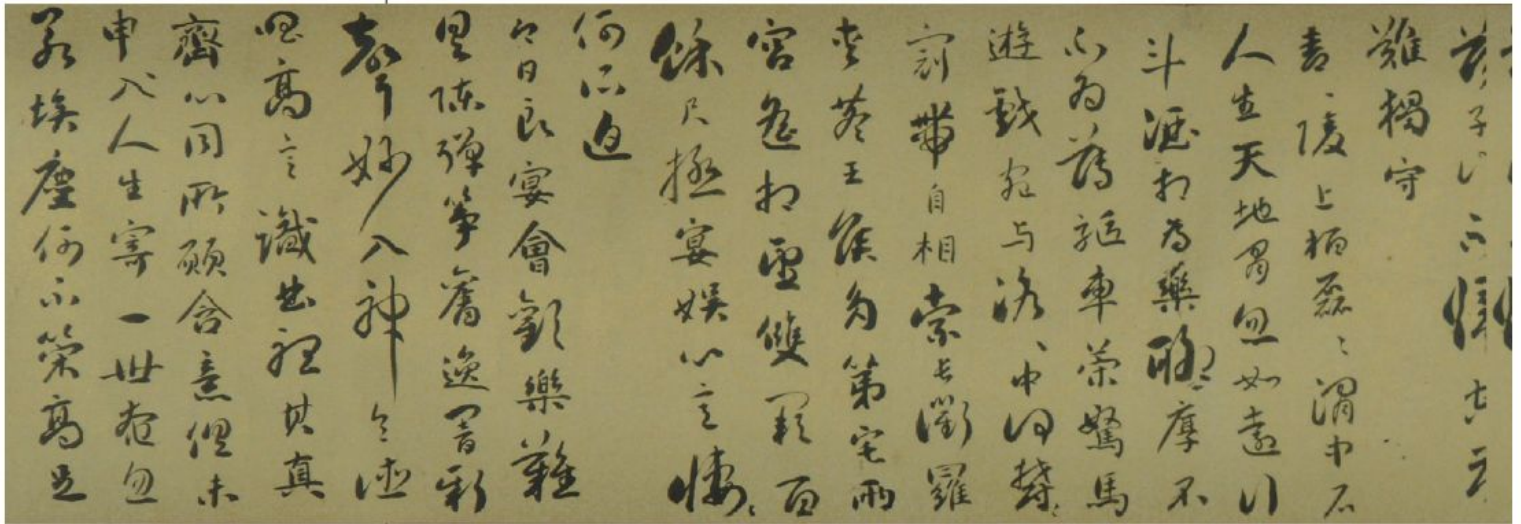 難獨守
青〻陵上柏磊〻澗中石
人生天地間忽如遠行
斗酒相為樂聊厚不
為薄驅車策駑馬
遊戲宛与洛〻中何鬱〻
冠帶自相索長衢羅
夾巷王侯多第宅兩
宮遙相望雙闕百
餘尺極宴娛心意慽〻
何所迫
今日良宴會歡樂難
具陳彈箏奮逸響新
聲妙入神令德
唱高言識曲聽其真
齊心同所願含意俱未
申人生寄一世奄忽
若埃塵何不策高足